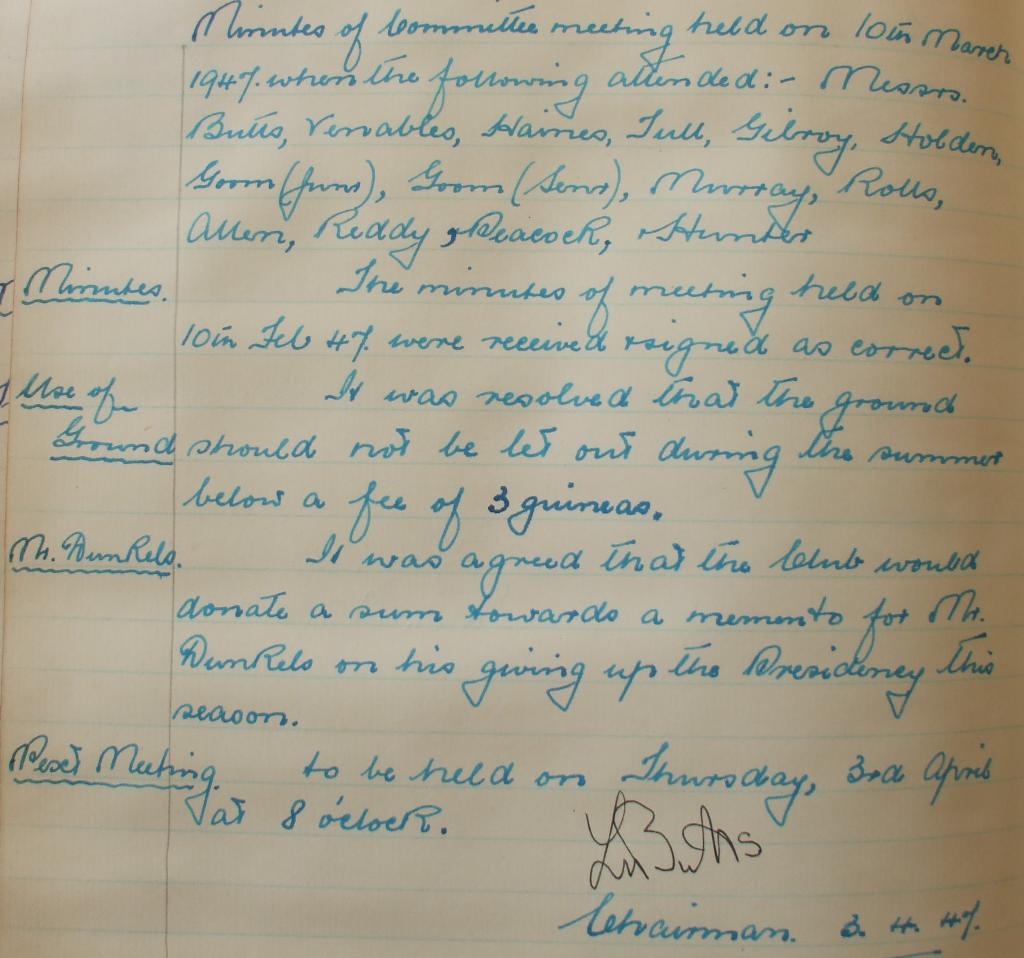 Minutes of Committee meeting held on 10th March
1947. when the following attended:- Messrs.
Butts, Venables, Haines, Tull, Gilroy, Holden,
Goom (Junr), Goom (Senr), Murray, Rolls,
Allen, Reddy, Peacock, & Hunter
Minutes. The minutes of meeting held on
10th Feb 47. were received & signed as correct.
Use of It was resolved that the ground
Ground should not be let out during the summer
below a fee of 3 guineas.
Mr. Dunkels. It was agreed that the Club would
donate a sum towards a memento for Mr.
Dunkels on his giving up the Presidency this
season.
Next Meeting. to be held on Thursday, 3rd April
at 8 o'clock.
Butts
Chairman. 3. 4. 47.